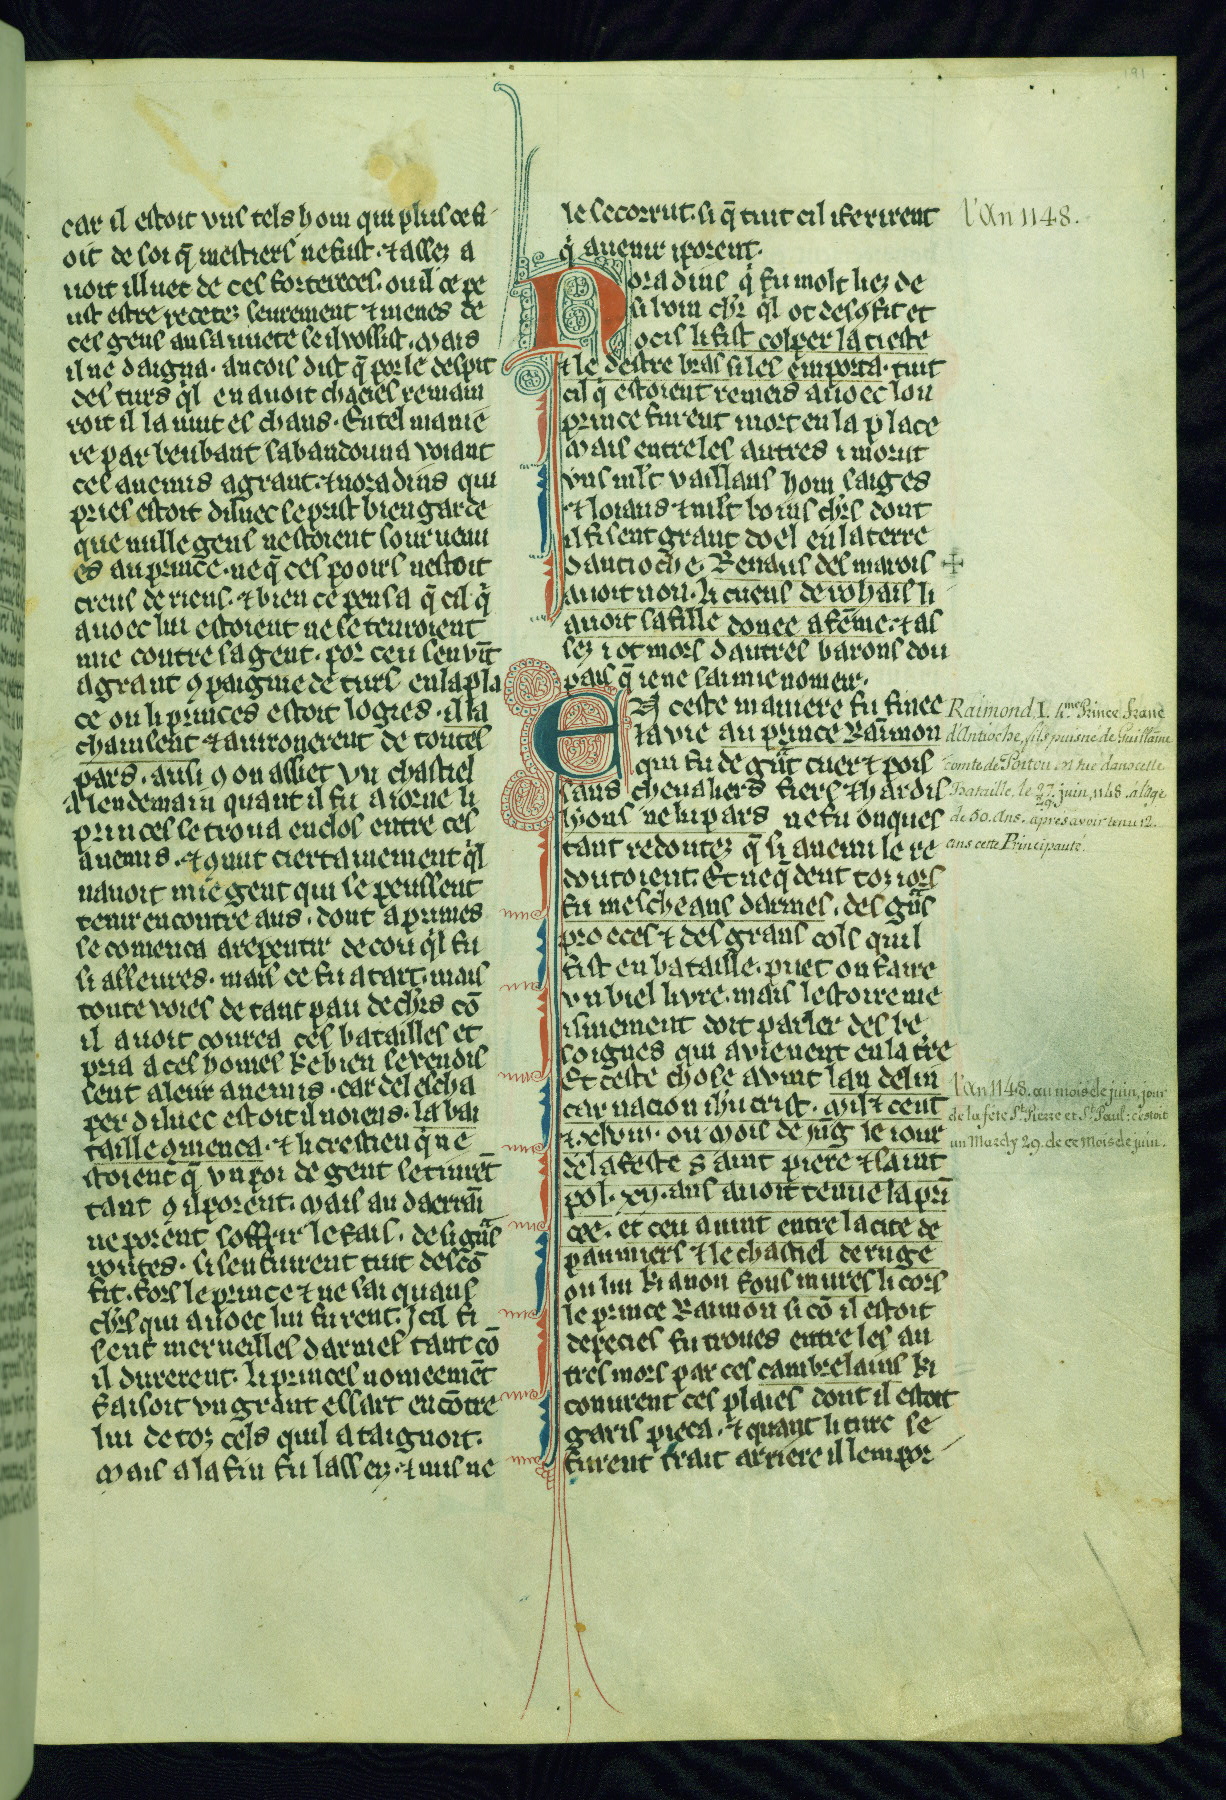 191
car il estoit vns tels hom qui plus se fi
oit de soi q̄ mestiers ne fust. ⁊ assez a
uoit illuec de ces forterеces. ou il ce pe
ust estre recetez seurement ⁊ menes de
ces gens au sauuete se il vossist. Mais
il ne daigna. ancois dist q̄ por le despit
des turs q̓l en auoit chacies remain
roit il la nuit es chans. En tel manie
re par beubant sabandouna voiant
ces anemis a grant. ⁊ noradins qui
pries estoit diluec se prist bien garde
que nulle gens nestoient souruenu
es au prince. ne q̄ ces pooirs nestoit
creus de riens. ⁊ bien ce pensa q̄ cil q̓
auoec lui estoient ne se tenroient
mie contre sa gent. por ceu sen vīt
a grant ꝯpaignie de turs en la pla
ce ou li princes estoit logies. il la
chainsent ⁊ auironerent de toutes
pars. ausi ꝯ on assiet vn chastiel
A lendemain quant il fu aiorne li
princes se troua enclos entre ces
anemis. ⁊ connut ciertainement q̓l
nauoit mie gent qui se peussent
tenir encontre aus. dont a primes
se comenca a repentir de cou q̓l fu
si asseures. mais ce fu a tart. mais
toute voies de tant pau de chr̄s cō
il auoit conrea ces batailles et
pria a ces homes ke bien se vendis
sent a leur anemis. car del escha
per diluec estoit il noiens. la ba
taille ꝯmenca. ⁊ li crestien q̓ ne
stoient q̄ vn poi de gent se tinrēt
tant ꝯ il porent. Mais au daerrai
ne porent soffrir le fais. de si grās
routes. si sen fuirent tuit descō
fit. fors le prince ⁊ ne sai quans
chr̄s qui auoec lui furent. Icil fi
sent merueilles darmes tant cō
il durerent. li princes nomeemēt
faisoit vn grant essart encōtre
lui de toz cels quil ataignoit.
Mais a la fin fu lassez. ⁊ nus ne
le secorrut. si q̄ tuit cil i ferirent
q̓ auenir i porent.
Noradins q̓ fu molt liez de
si boin chr̄ q̓l ot desꝯfit et
ocis li fist colper la tieste
⁊ le destre bras si les emporta. tuit
cil q̓ estoient remeis auoec lou
prince furent mort en la place
Mais entre les autres i morut
vns ml̄t vaillans hom saiges
⁊ loiaus ⁊ ml̄t boins chr̄s dont
il fisent grant doel en la terre
dantioche. Renaus des marois
auoit non. li cuens de rohais li
auoit sa fille donee a feme. ⁊ as
sez i ot mors dautres barons dou
pais q̄ ie ne sai mie nomer.
En ceste maniere fu finee
la vie au prince Raimon
qui fu de grāt cuer ⁊ pois
sans chevaliers fiers ⁊ hardis
lyons ne lupars ne fu onques
tant redoutez q̄ si anemi le re
doutoient. Et neq̄dent toz iors
fu mescheans darmes. des grās
proeces ⁊ des grans cols quil
fist en bataille. puet on faire
vn biel livre. mais lestoire me
ismement doit parler des be
soignes qui avienent en la t̄re
Et ceste chose avint lan delin
carnacion ihūcrist. Mil ⁊ cent
⁊ xlviii. ou mois de jug le iour
de la feste saint piere ⁊ saint
pol. xij. ans auoit tenue la prī
cee. et ceu avint entre la cite de
paumiers ⁊ le chastiel de ruge
ou lui ki anon fons mures li cors
le prince Raimon si cō il estoit
depecies fu troues entre les au
tres mors par ces cambrelains ki
conurent ces plaies dont il estoit
garis pieca. ⁊ quant li turc se
furent trait arriere il lempor
l'An 1148.
Raimond I. 4.me Prince Franc
d'Antioche, fils puisné de Guillaume
comte de Poitou est tué dans cette
Bataille, le 27. juin, 1148. à l'age
29.
de 50. Ans. apres avoir tenu 12.
ans cette Principauté.
l'An 1148. au mois de juin, jour
de la fete St. Pierre et St. Paul: c'estoit
un Mardy 29. de ce Mois de juin.